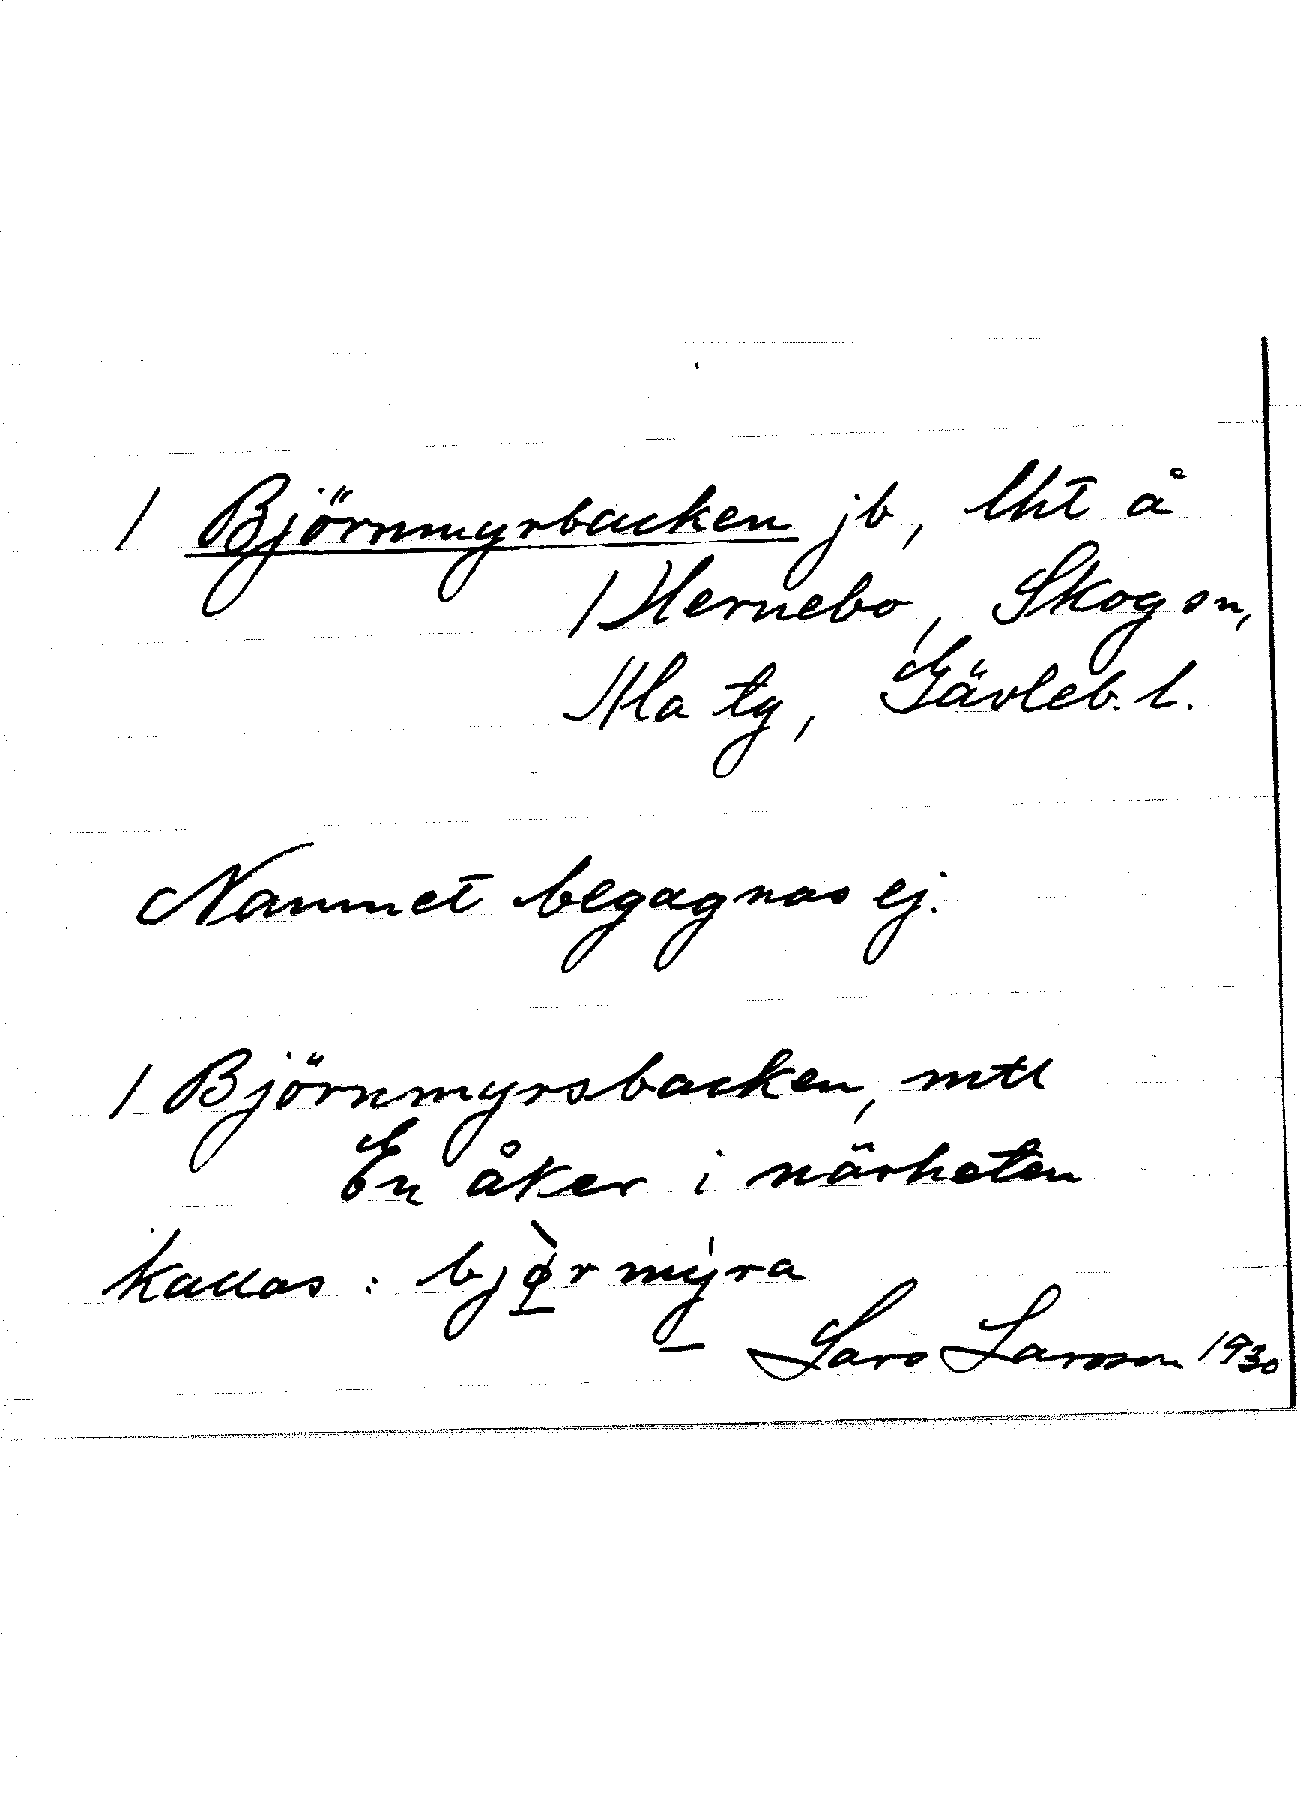 / Björnmyrbacken jb, lht å
/ Hernebo, Skog sn,
Ala tg, Gävleb. l.
Namnet begagnas ej.
/ Björnmyrsbacken, mtl
En åker i närheten
kallas: bjø̀rmyra
Lars Larsson 1930